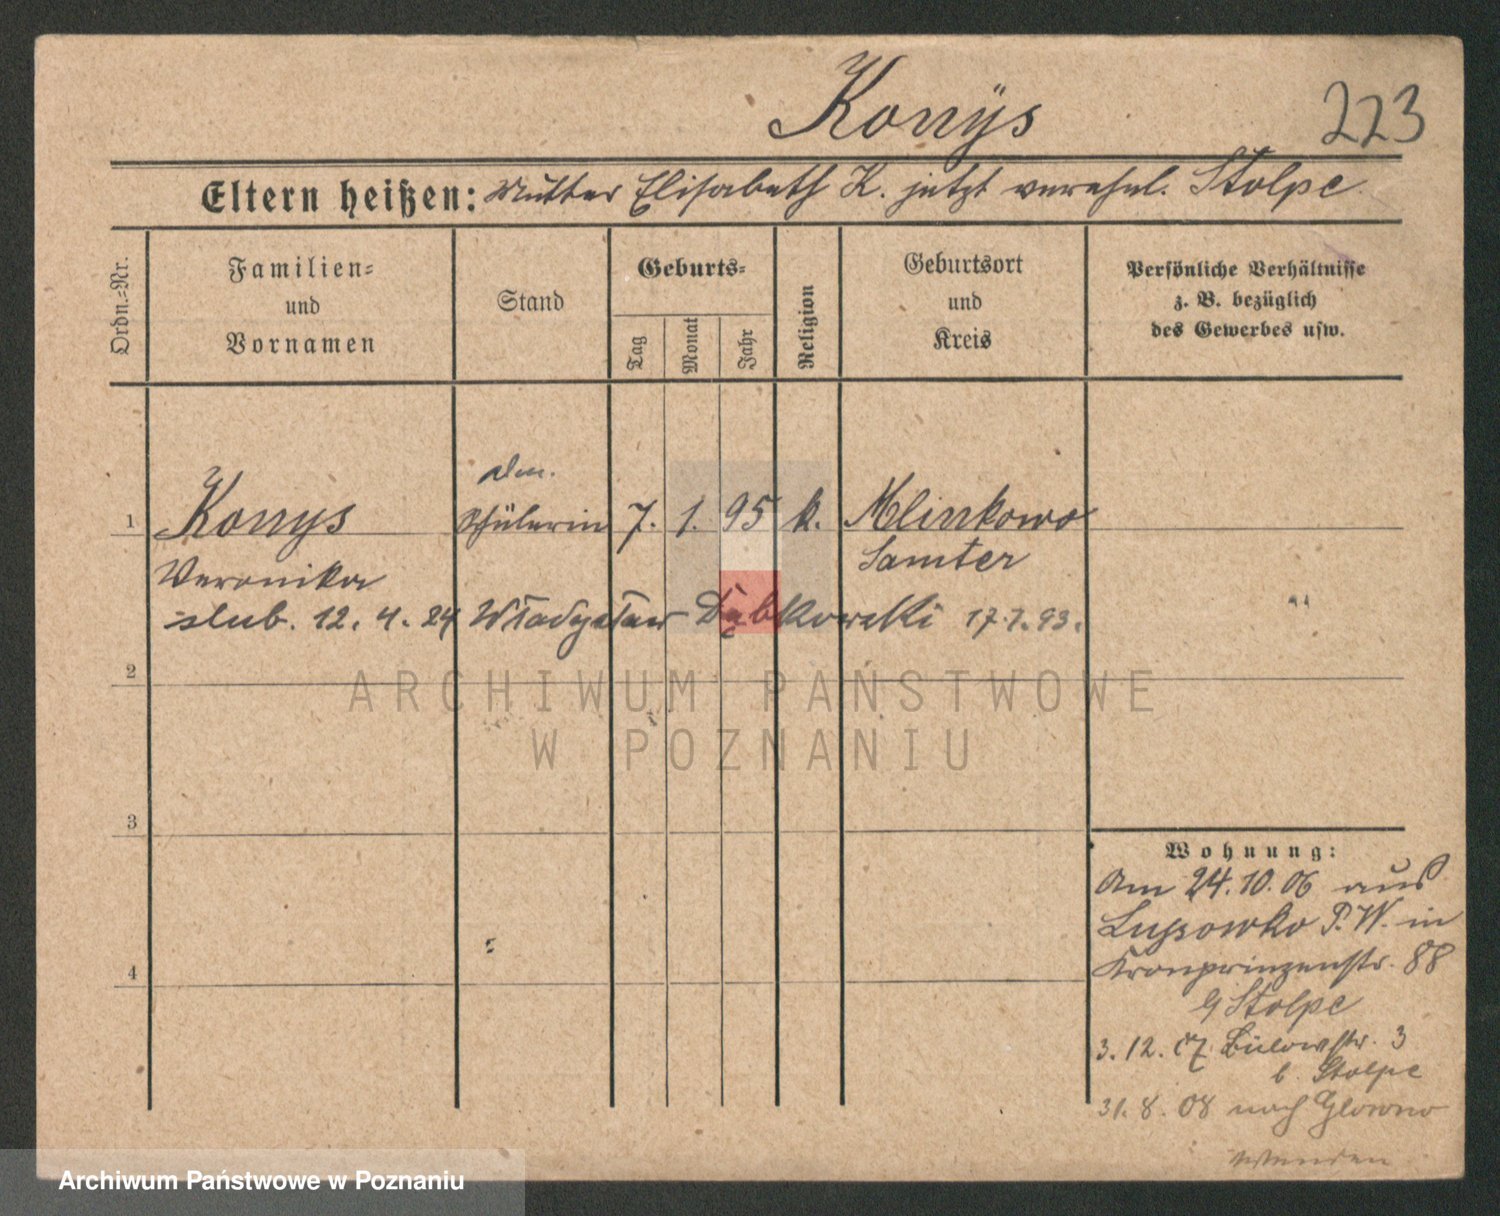 Konÿs
223
Eltern heißen: Mutter Elisabeth K. jetzt verehel. Stolpe.
Ordn.=Nr.
Familien=
und
Vornamen
Stand
Geburts=
Tag
Monat
Jahr
Religion
Geburtsort
und
Kreis
Persönliche Verhältnisse
z. B. bezüglich
des Gewerbes usw.
1 Konys Schülerin 7. 1. 95 k. Mlinkowo
Veronika Samter
slub. 12. 4. 24 Władysław Dąbkowski 17.7.93.
2
3
4
Wohnung:
Am 24.10.06 aus
Lussowko P.W. in
Kronprinzenstr. 88
b/ Stolpe
3.12.07 Bülowstr. 3
b. Stolpe
31.8.08 nach Glowno
wenden
ARCHIWUM PAŃSTWOWE
W POZNANIU
Archiwum Państwowe w Poznaniu